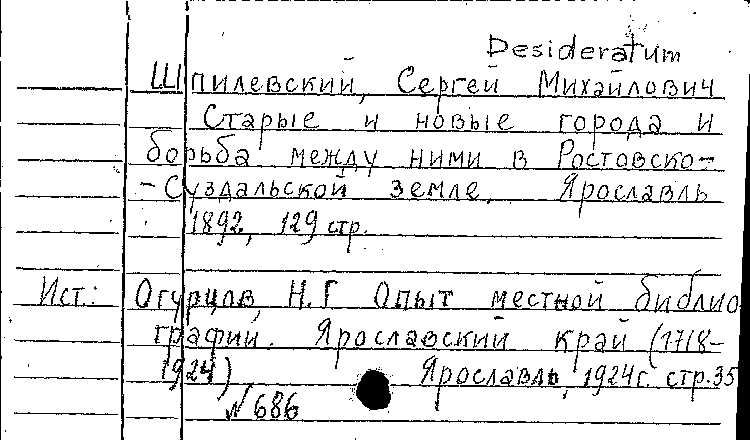 Desideratum
Шпилевский, Сергей Михайлович
Старые и новые города и
борьба между ними в Ростовско-
-Суздальской земле. Ярославль
1892, 129 стр.
Ист.: Огурцов, Н.Г Опыт местной библио
графий. Ярославский край (1718-
1924) Ярославль, 1924г. стр.35
№686